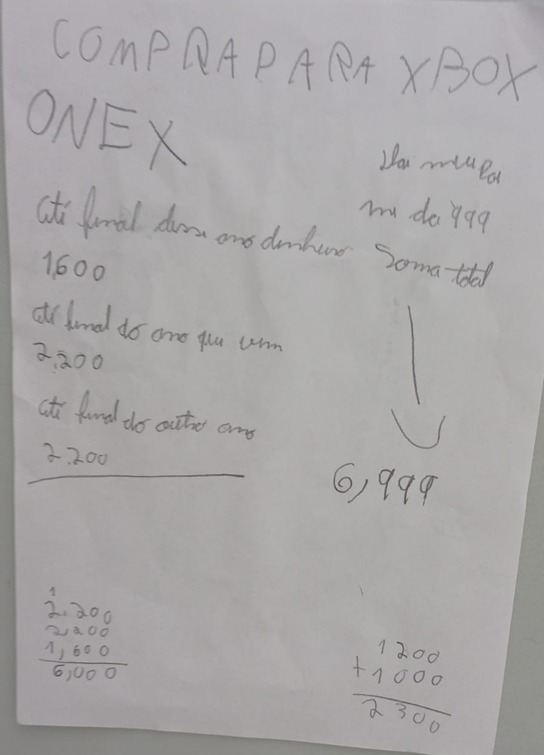 COMPRA PARA XBOX
ONE X
meu pai
me da 999
até final desse ano dinheiro
Soma total
1,600
até final do ano que vem
2.200
até final do outro ano
2.200
6,999
1
2.200
2,200
1,600
6,000
1200
+1000
2300